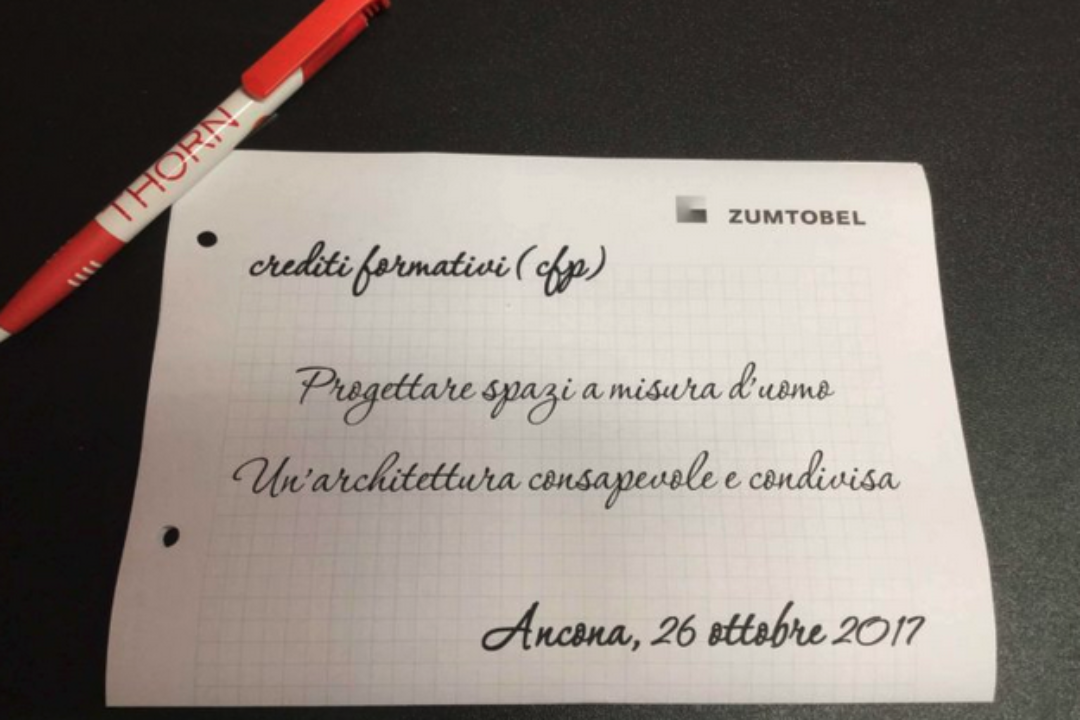 THORN
ZUMTOBEL
crediti formativi ( cfp)
Progettare spazi a misura d'uomo
Un'architettura consapevole e condivisa
Ancona, 26 ottobre 2017